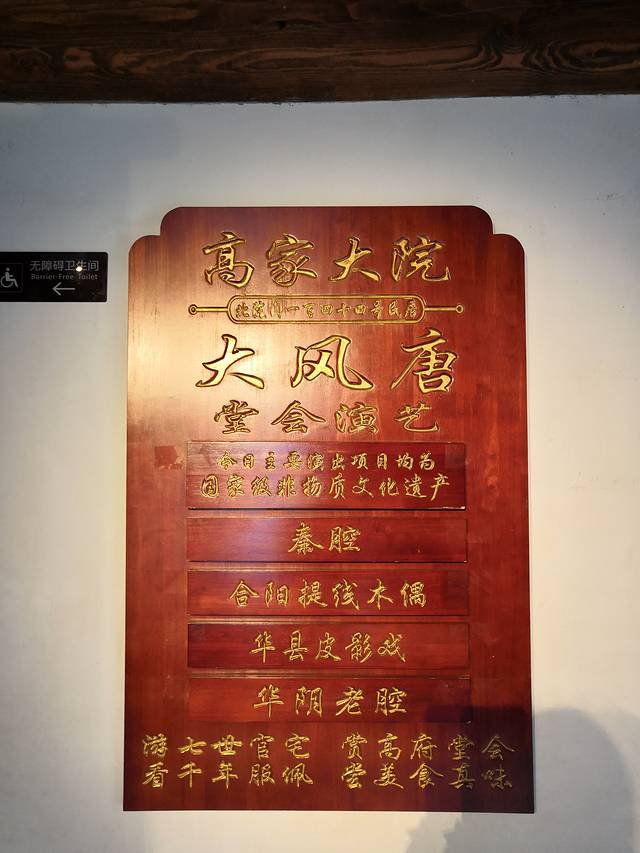 高家大院
北院门一百四十四号民居
大风唐
堂会演艺
今日主要演出项目均为
国家级非物质文化遗产
秦腔
合阳提线木偶
华县皮影戏
华阴老腔
游七世官宅 赏高府堂会
看千年服佩 尝美食真味
无障碍卫生间
Barrier-Free Toilet